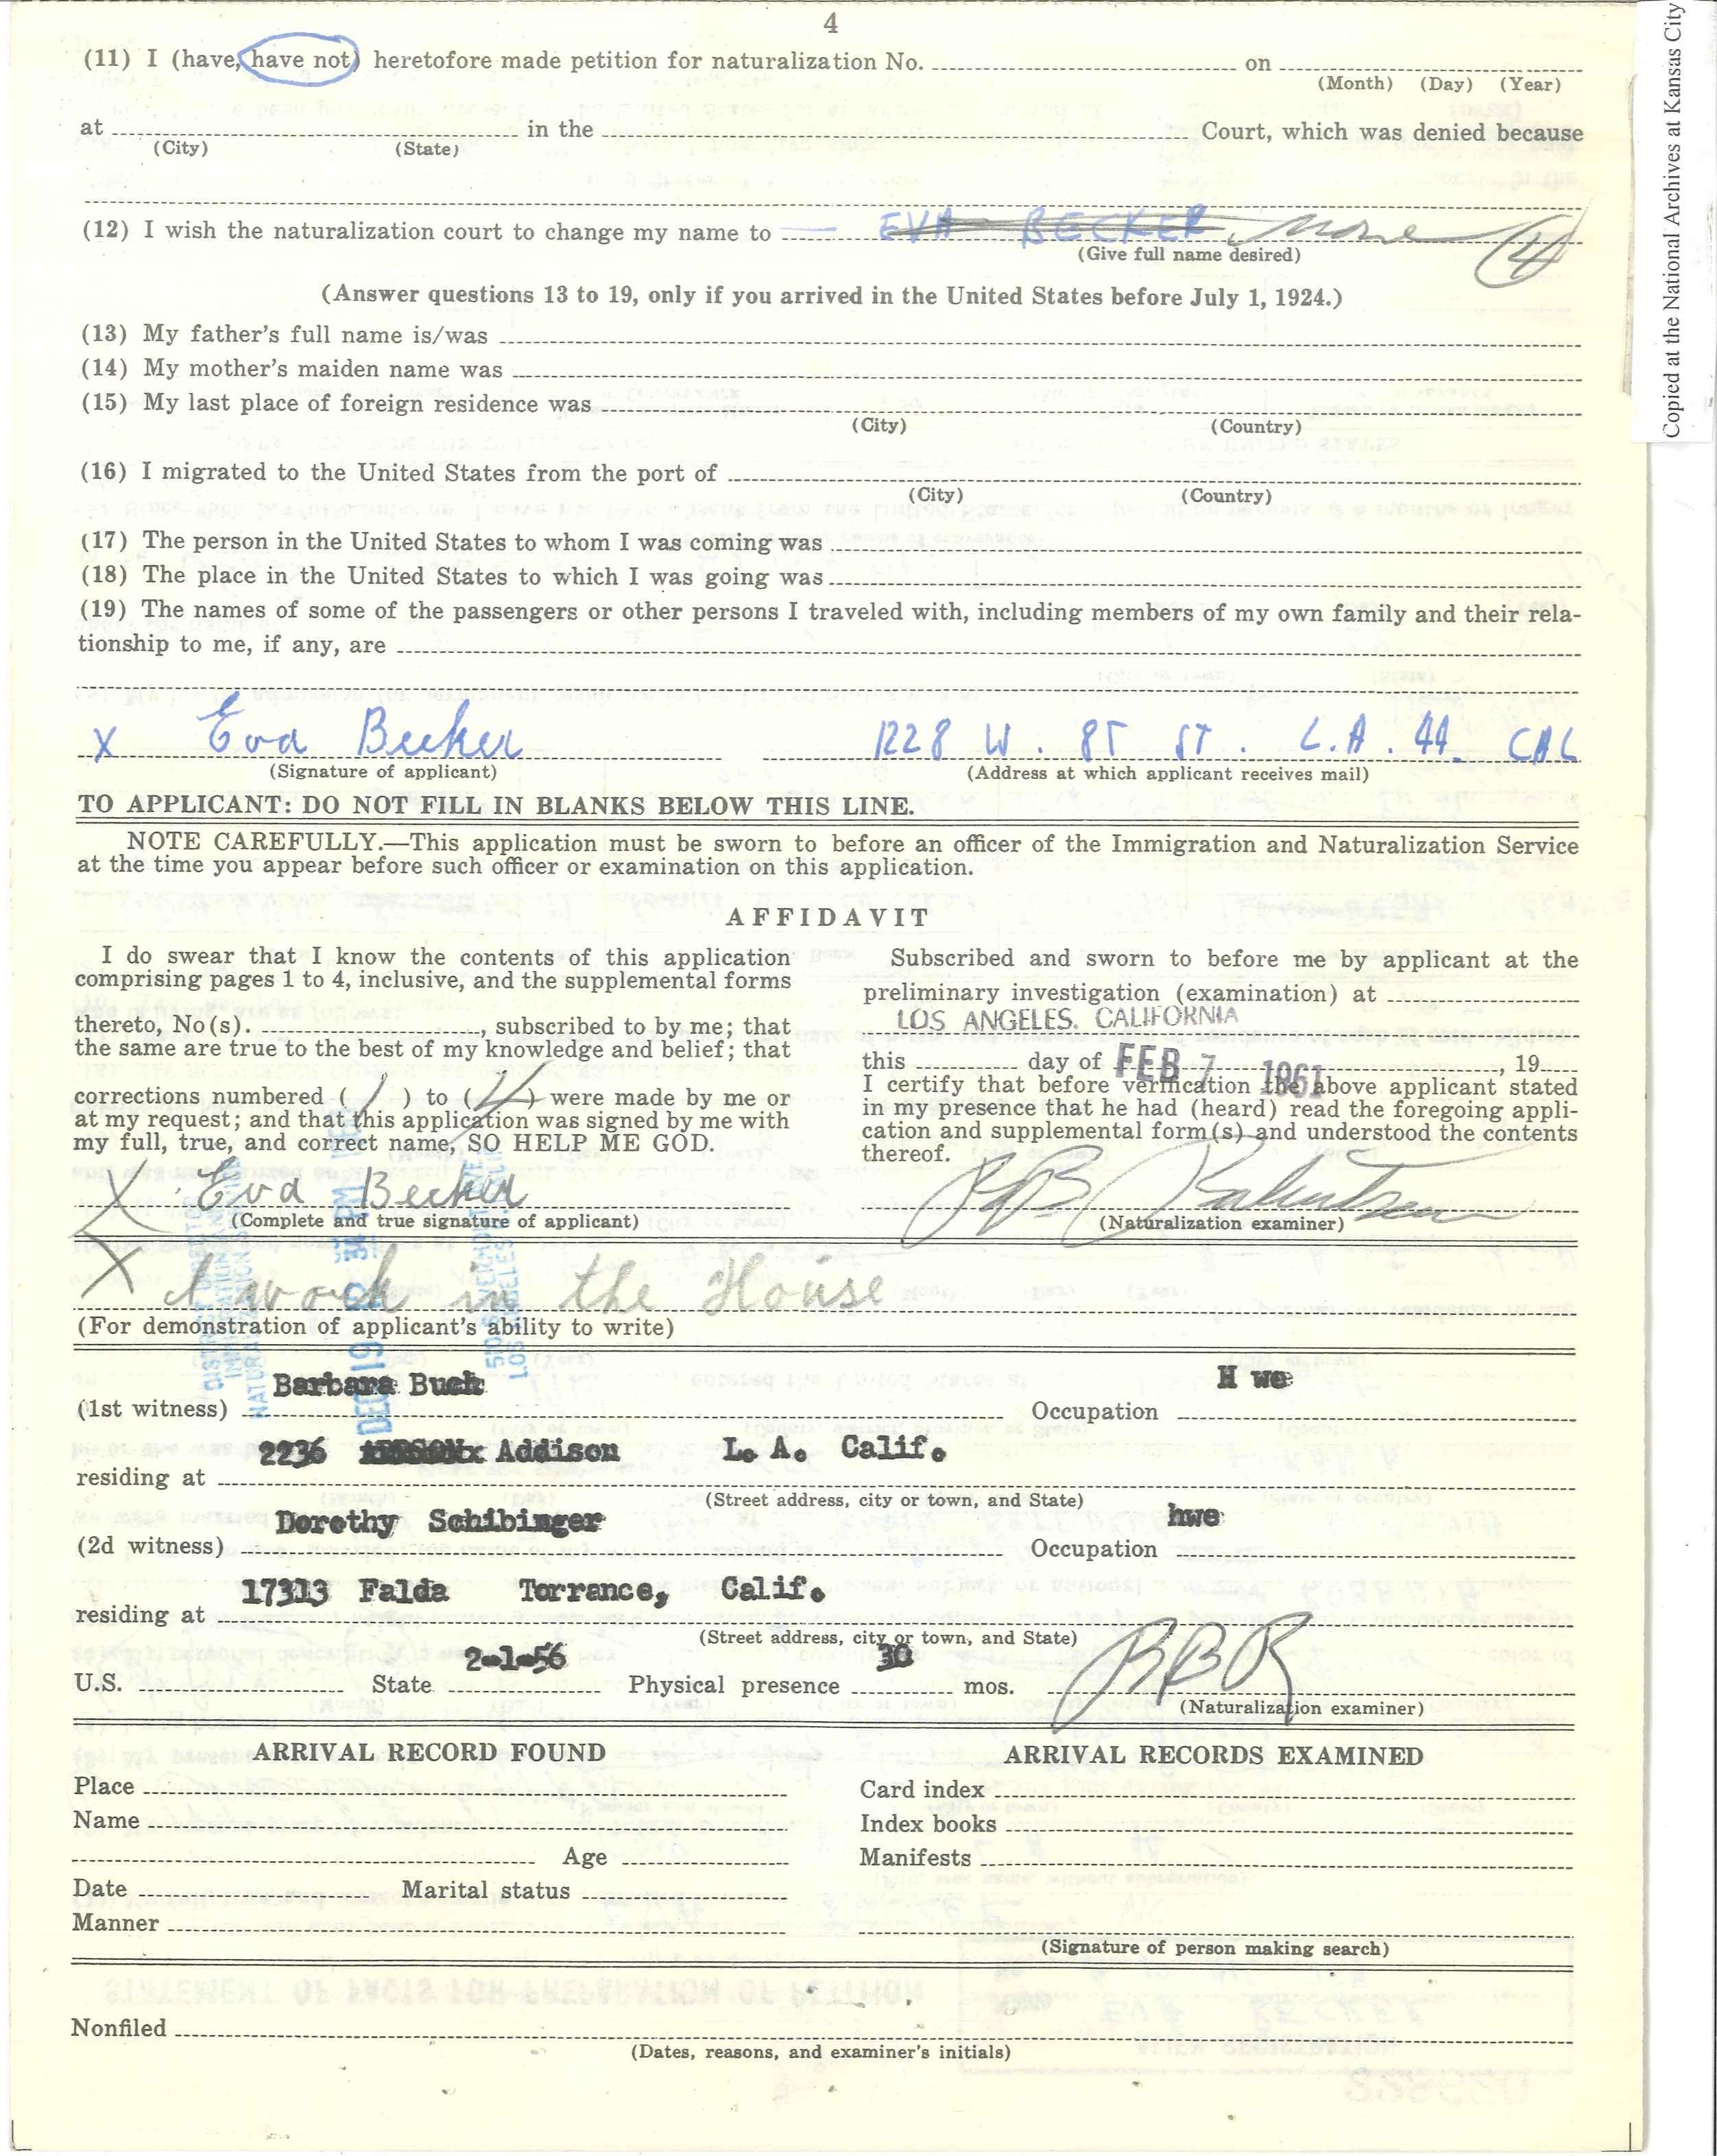 4
(11) I (have, have not) heretofore made petition for naturalization No. on
(Month) (Day) (Year)
at in the Court, which was denied because
(City) (State)
(12) I wish the naturalization court to change my name to EVA BECKER none (4)
(Give full name desired)
(Answer questions 13 to 19, only if you arrived in the United States before July 1, 1924.)
(13) My father's full name is/was
(14) My mother's maiden name was
(15) My last place of foreign residence was
(City) (Country)
(16) I migrated to the United States from the port of
(City) (Country)
(17) The person in the United States to whom I was coming was
(18) The place in the United States to which I was going was
(19) The names of some of the passengers or other persons I traveled with, including members of my own family and their rela-
tionship to me, if any, are
X Eva Becker 1228 W. 8T ST. L.A. 44 CAL
(Signature of applicant) (Address at which applicant receives mail)
TO APPLICANT: DO NOT FILL IN BLANKS BELOW THIS LINE.
NOTE CAREFULLY.—This application must be sworn to before an officer of the Immigration and Naturalization Service
at the time you appear before such officer or examination on this application.
AFFIDAVIT
I do swear that I know the contents of this application
comprising pages 1 to 4, inclusive, and the supplemental forms
thereto, No(s). , subscribed to by me; that
the same are true to the best of my knowledge and belief; that
corrections numbered (1) to (4) were made by me or
at my request; and that this application was signed by me with
my full, true, and correct name, SO HELP ME GOD.
X Eva Becker
(Complete and true signature of applicant)
Subscribed and sworn to before me by applicant at the
preliminary investigation (examination) at
LOS ANGELES, CALIFORNIA
this day of FEB 7 1961, 19
I certify that before verification the above applicant stated
in my presence that he had (heard) read the foregoing appli-
cation and supplemental form(s) and understood the contents
thereof.
(Naturalization examiner)
X I work in the House
(For demonstration of applicant's ability to write)
Barbara Buch H we
(1st witness) Occupation
2236 Addison L. A. Calif.
residing at
(Street address, city or town, and State)
Dorothy Schibinger hwe
(2d witness) Occupation
17313 Falda Torrance, Calif.
residing at
(Street address, city or town, and State)
2-1-56 30
U.S. State Physical presence mos. BBR
(Naturalization examiner)
ARRIVAL RECORD FOUND
Place
Name
Age
Date Marital status
Manner
ARRIVAL RECORDS EXAMINED
Card index
Index books
Manifests
(Signature of person making search)
Nonfiled
(Dates, reasons, and examiner's initials)
Copied at the National Archives at Kansas City